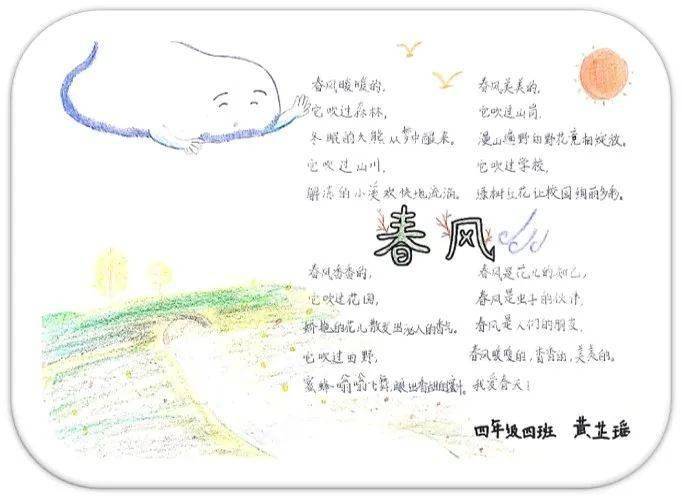 春风暖暖的，
它吹过森林，
冬眠的大熊从梦中醒来。
它吹过山川，
解冻的小溪欢快地流淌。
春风美美的，
它吹过山岗，
漫山遍野的野花竞相绽放。
它吹过学校，
绿树红花让校园绚丽多彩。
春风
春风香香的，
它吹过花园，
娇艳的花儿散发出沁人的香气。
它吹过田野，
蜜蜂嗡嗡飞舞，
春风是花儿的知己，
春风是虫子的伙伴，
春风是人们的朋友，
春风暖暖的，香香的，美美的。
我爱春天！
四年级四班 黄芷瑶